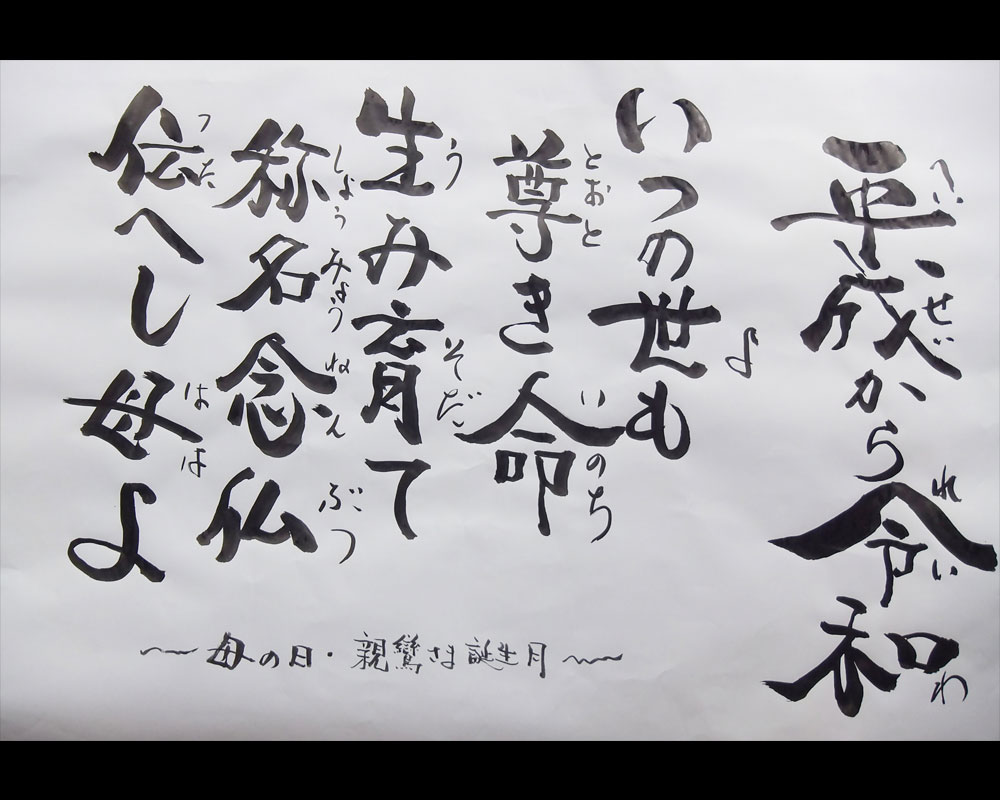 平成から令和
へいせい
れいわ
いつの世も
よ
尊き命
とおと
いのち
生み育て
う
そだ
称名念仏
しょうみょうねんぶつ
伝へし母よ
つた
はは
〜母の日・親鸞さま誕生月〜